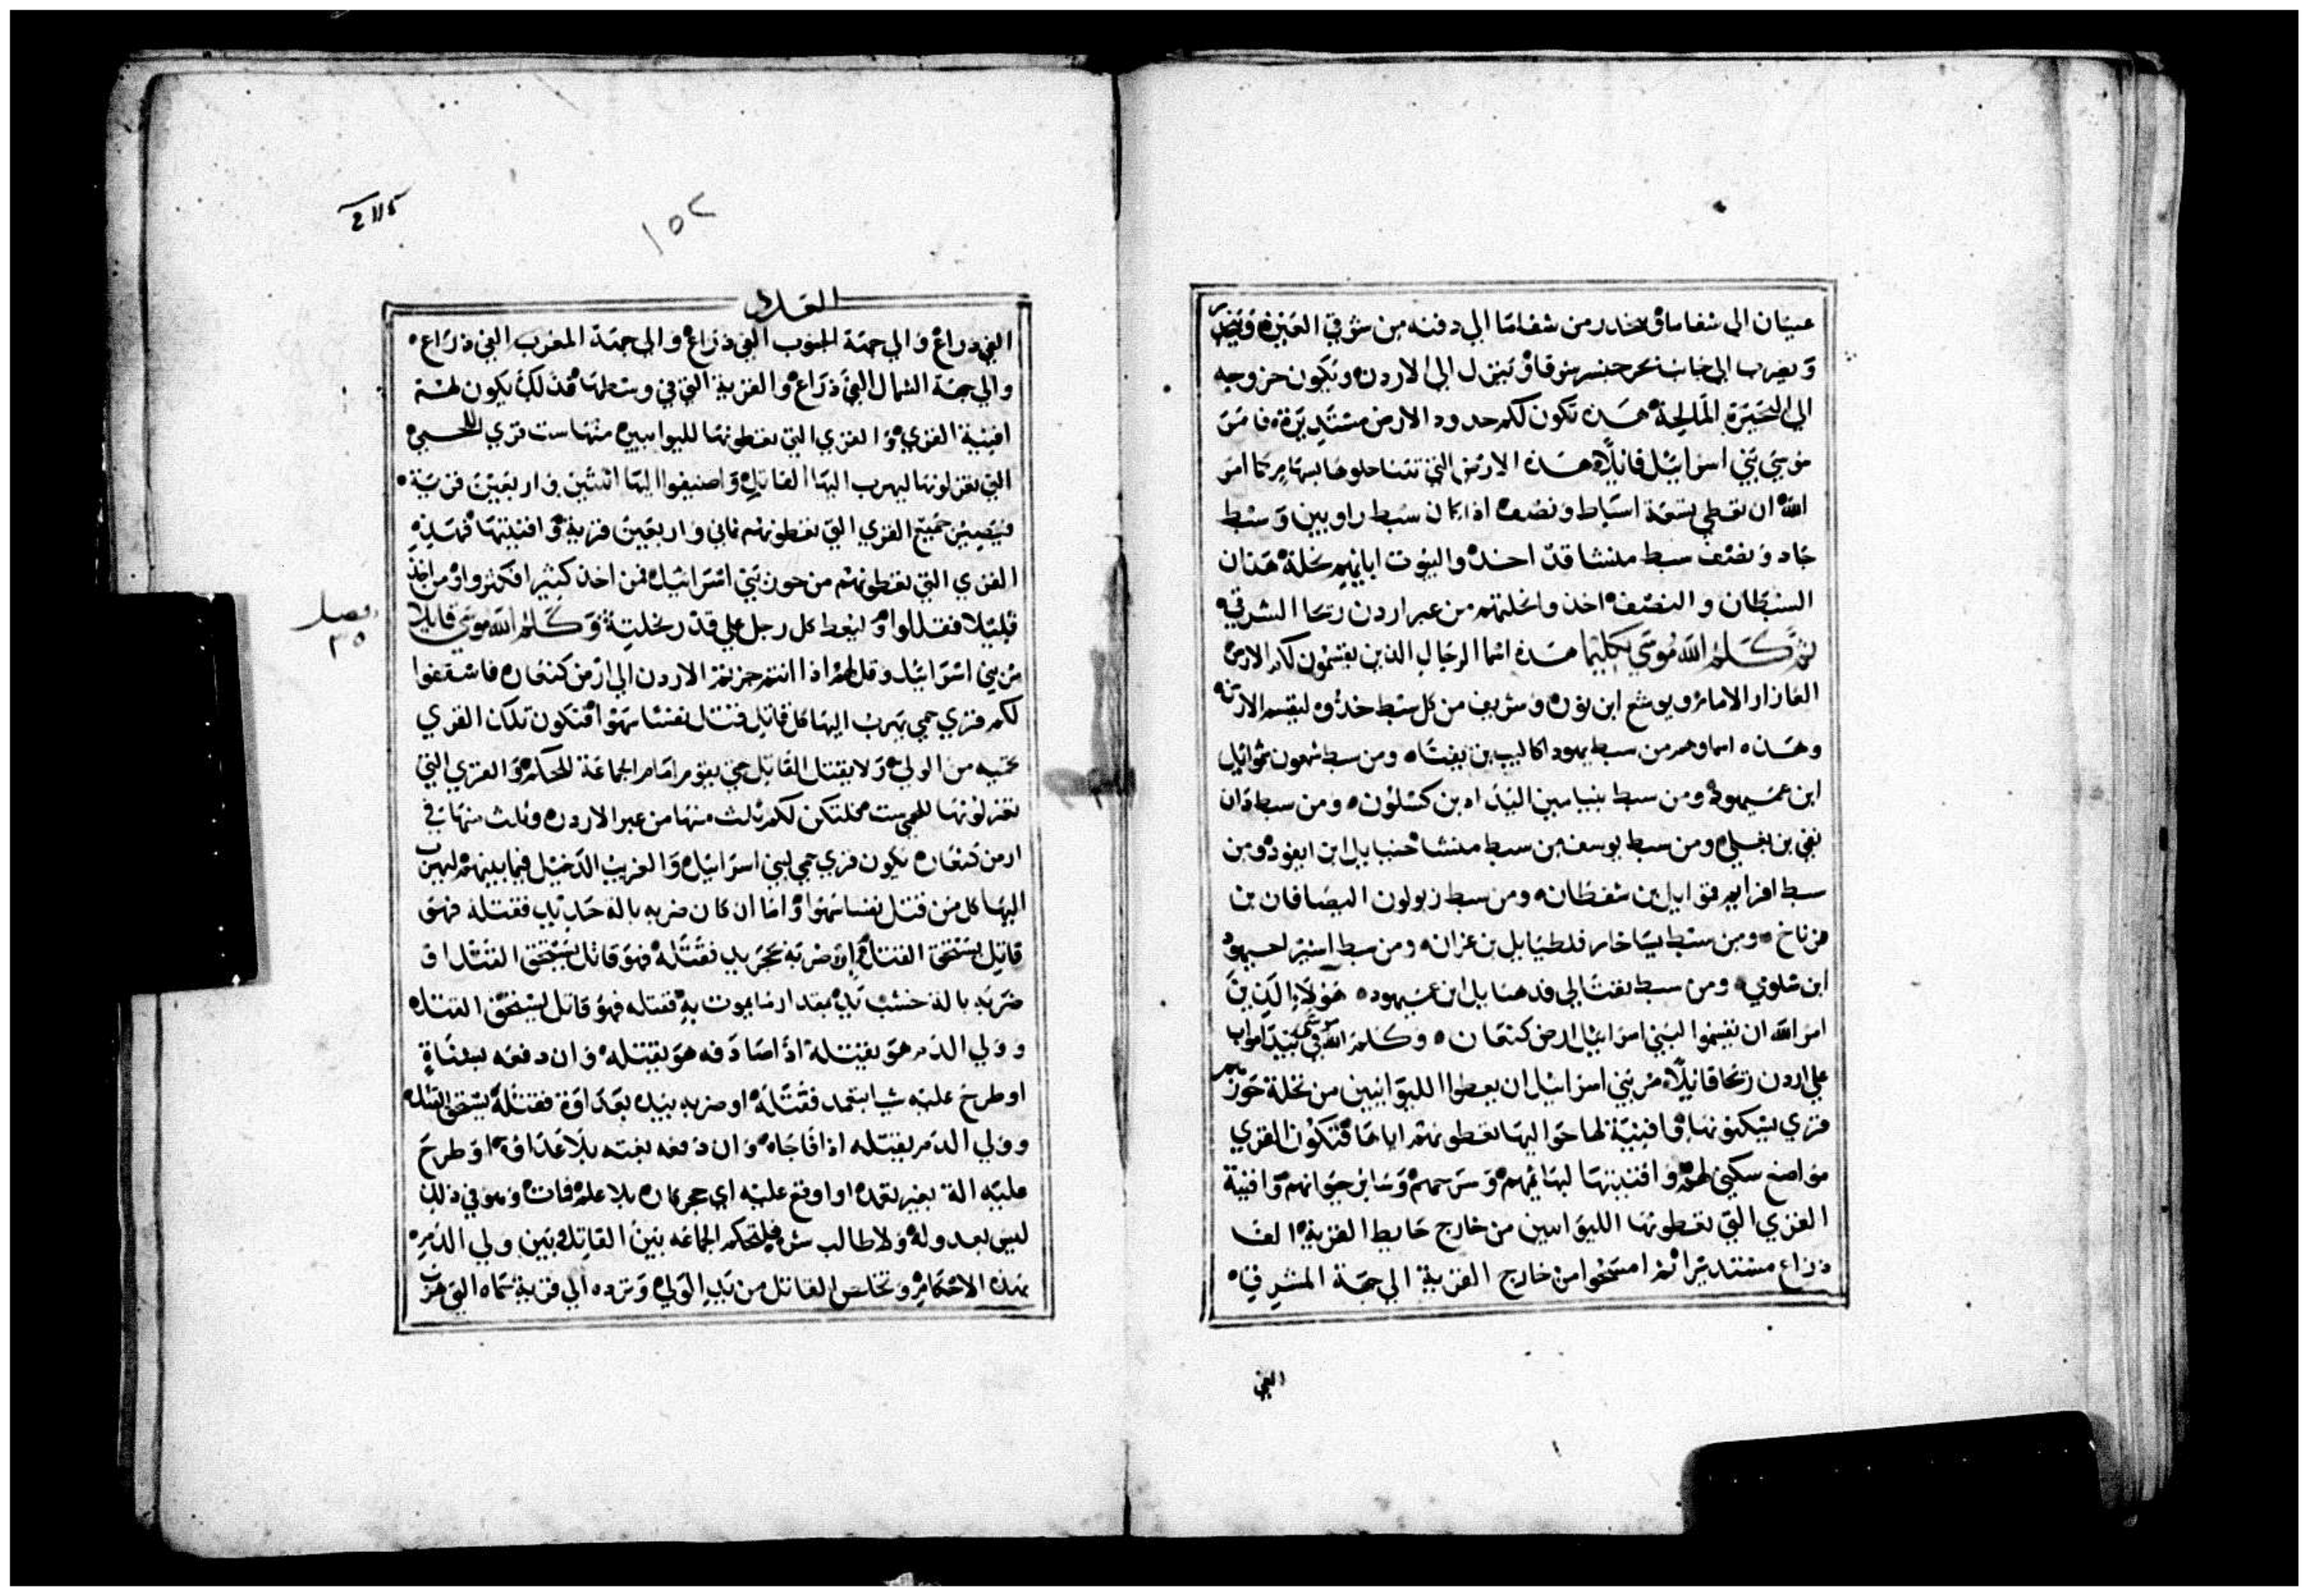 عينان الى شفاما وينحدر من شفاما الي دفنه من شرقي العين وينحدر
ويضرب الي جانب بحر جنسر شرقا وينزل الى الاردن ويكون خروجه
الي البحيرة المالحة هذه تكون لكم حدود الارض مستديرة فامر
موسي بني اسرائيل قائلا هذه الارض التي تتناحلوها بسهام كما امر
الله ان تعطي تسعة اسباط ونصف اذ كان سبط راوبين وسبط
جاد ونصف سبط منشا قد اخذوا لبيوت ابائهم نحلة هذان
السبطان والنصف اخذوا نحلتهم من عبر اردن ريحا الشرقي
ثم كلم الله موسي تكليما هذه اسما الرجال الذين يقسمون لكم الارض
العازار الامام ويوشع ابن نون وشريف من كل سبط خذوه ليقسم الارض
وهذه اسماوهم من سبط يهودا كالب بن يفنا ومن سبط شمعون شموائيل
ابن عميهود ومن سبط بنيامين اليداد بن كسلون ومن سبط دان
بقي بن يغلي ومن سبط يوسف من سبط منشا حنيايل ابن ايفود ومن
سبط افرايم قموايل بن شفطان ومن سبط زبولون اليصافان بن
فرناخ ومن سبط يساخار فلطيايل بن عزان ومن سبط اشير احيهود
ابن شلومي ومن سبط نفتالي فدهايل ابن عميهود هولاء الذين
امر الله ان يقسموا لبني اسرائيل ارض كنعان وكلم الله موسي في بيدا مواب
علي اردن ريحا قائلا مر بني اسرائيل ان يعطوا الليوانيين من نحلة حوزهم
قري يسكنونها وافنية لها حواليها تعطونهم اياها فتكون القري
مواضع سكني لهم وافنيتها لبهائمهم وسرحهم وسائر حيوانهم وافنية
القري التي تعطونها الليوانيين من خارج حايط القرية الفا
ذراع مستديرا ثم امسحوا من خارج القرية الي جهة المشرق
الفي
2115
١٥٢
العدد
الفي ذراع والي جهة الجنوب الفي ذراع والي جهة المغرب الفي ذراع
والي جهة الشمال الفي ذراع والقرية التي في وسطها فذلك يكون لهم
افنية القري والقري التي تعطونها لليوانيين منها ست قري للحمي
التي تعزلونها ليهرب اليها القاتل واضيفوا اليها اثنتين واربعين قرية
فيصير جميع القري التي تعطونهم ثماني واربعين قرية وافنيتها فهذه
القري التي تعطونهم من حوز بني اسرائيل فمن اخذ كثيرا فكثروا ومن اخذ
قليلا فقللوا وليعط كل رجل علي قدر نحلته وكلم الله موسي قايلا
فصل
٣٥
مر بني اسرائيل وقل لهم اذا انتم جزتم الاردن الي ارض كنعان فاسقفوا
لكم قري حمي يهرب اليها كل قاتل قتل نفسا سهوا فتكون تلك القري
حميه من الولي ولا يقتل القاتل حتي يقوم امام الجماعة للحكم والقري التي
تعزلونها للحمي ست فلتكن لكم ثلث منها من عبر الاردن وثلث منها في
ارض كنعان تكون قري حمي لبني اسرائيل والغريب الدخيل فيما بينهم ليهرب
اليها كل من قتل نفسا سهوا واما ان كان ضربه بالة حديد فقتله فهو
قاتل يستحق القتل وان ضربه بحجر يد فقتله فهو قاتل يستحق القتل او
ضربه بالة خشب يد بمقدار ما يموت به فقتله فهو قاتل يستحق القتل
وولي الدم هو يقتله اذا صادفه هو يقتله وان دفعه بشناة
او طرح عليه شيا بتعمد فقتله او ضربه بيده بعداوة فقتله يستحق القتل
وولي الدم يقتله اذا فاجاه وان دفعه بغته بلا عداوة او طرح
عليه الة بغير تعمد او اوقع عليه اي حجر كان بلا علم فمات وهو في ذلك
ليس بعدو له ولا طالب شر فليحكم الجماعه بين القاتل وبين ولي الدم
بهذه الاحكام وتخلص القاتل من يد الولي وترده الي قرية حماه التي هرب